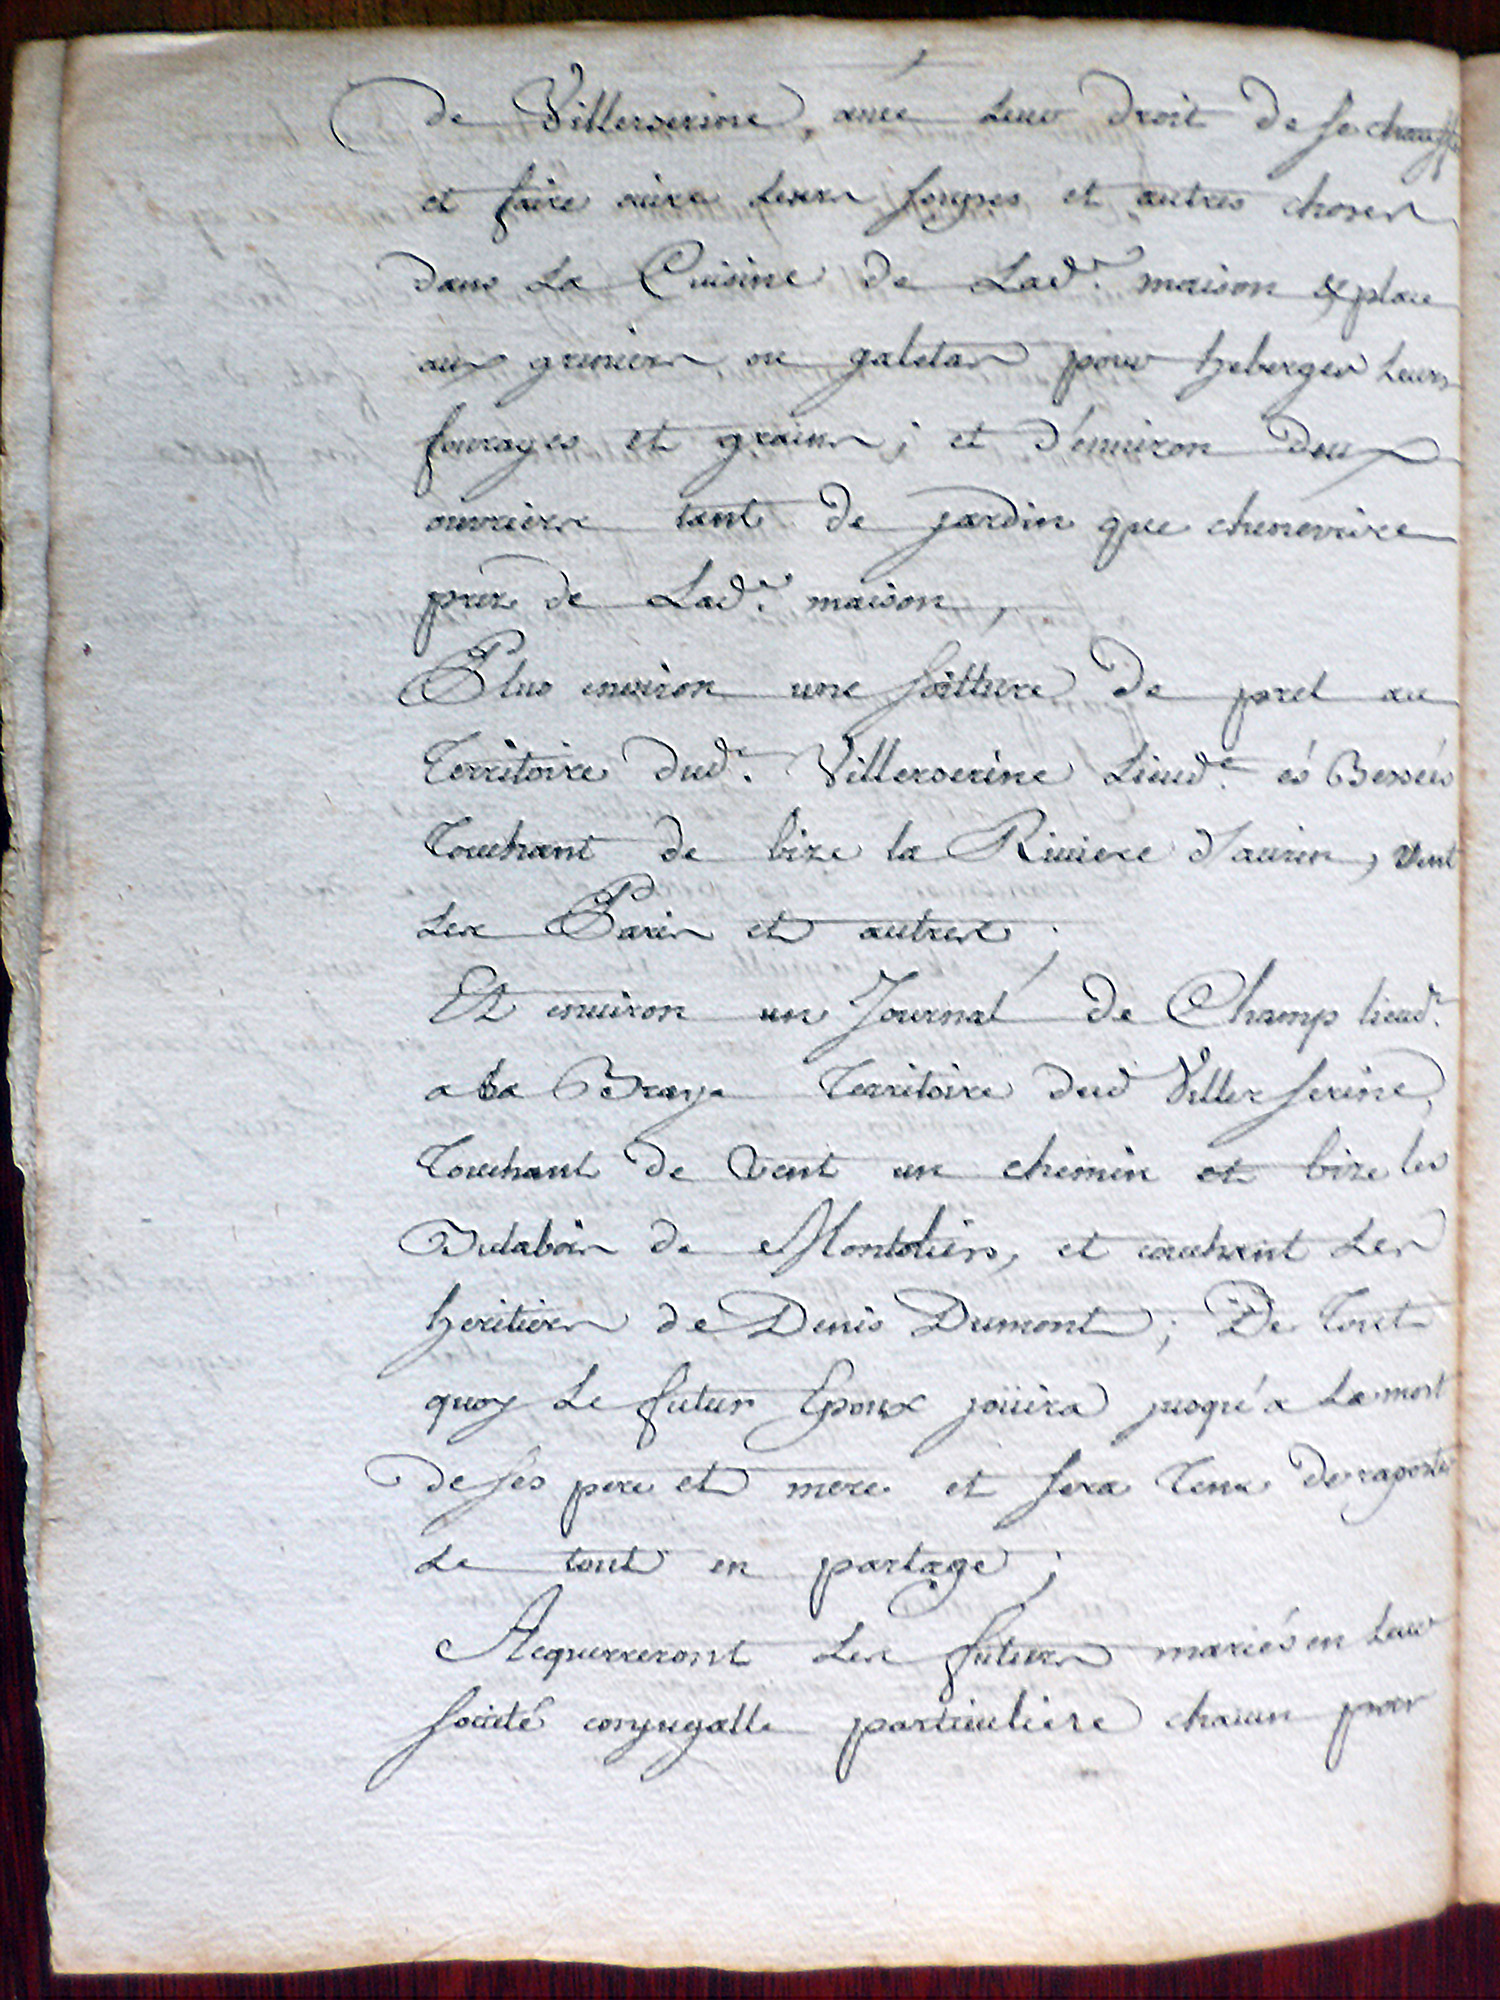 de Villerserine, avec leur droit de se chauffer
et faire cuire leurs soupes et autres choses
dans La Cuisine de Lad.e maison & place
aux greniers ou galetas pour heberger leurs
fourages et grains; et d'environ deux
ouvriers tant de jardin que cheneviere
prez de Lad.e maison,
Plus environ une soitture de prel au
Territoire dud.t Villerserine Lieud.t és Bessées
Touchant de bize la Riviere d'aurin, vent
Les Paris et autres;
Et environ un Journal de Champ lieud.t
a La Braye Territoire dud Villerserine,
Touchant de Vent un chemin et bize les
de Montoliers, et couchant Les
heritiers de Denis Dumont; De Tout
quoy Le futur Epoux joüira jusqu'a La mort
de ses pere et mere et sera Tenu de raporter
Le tout en partage;
Acquerreront Les futurs mariés en Leur
société conjugalle particuliere chacun pour